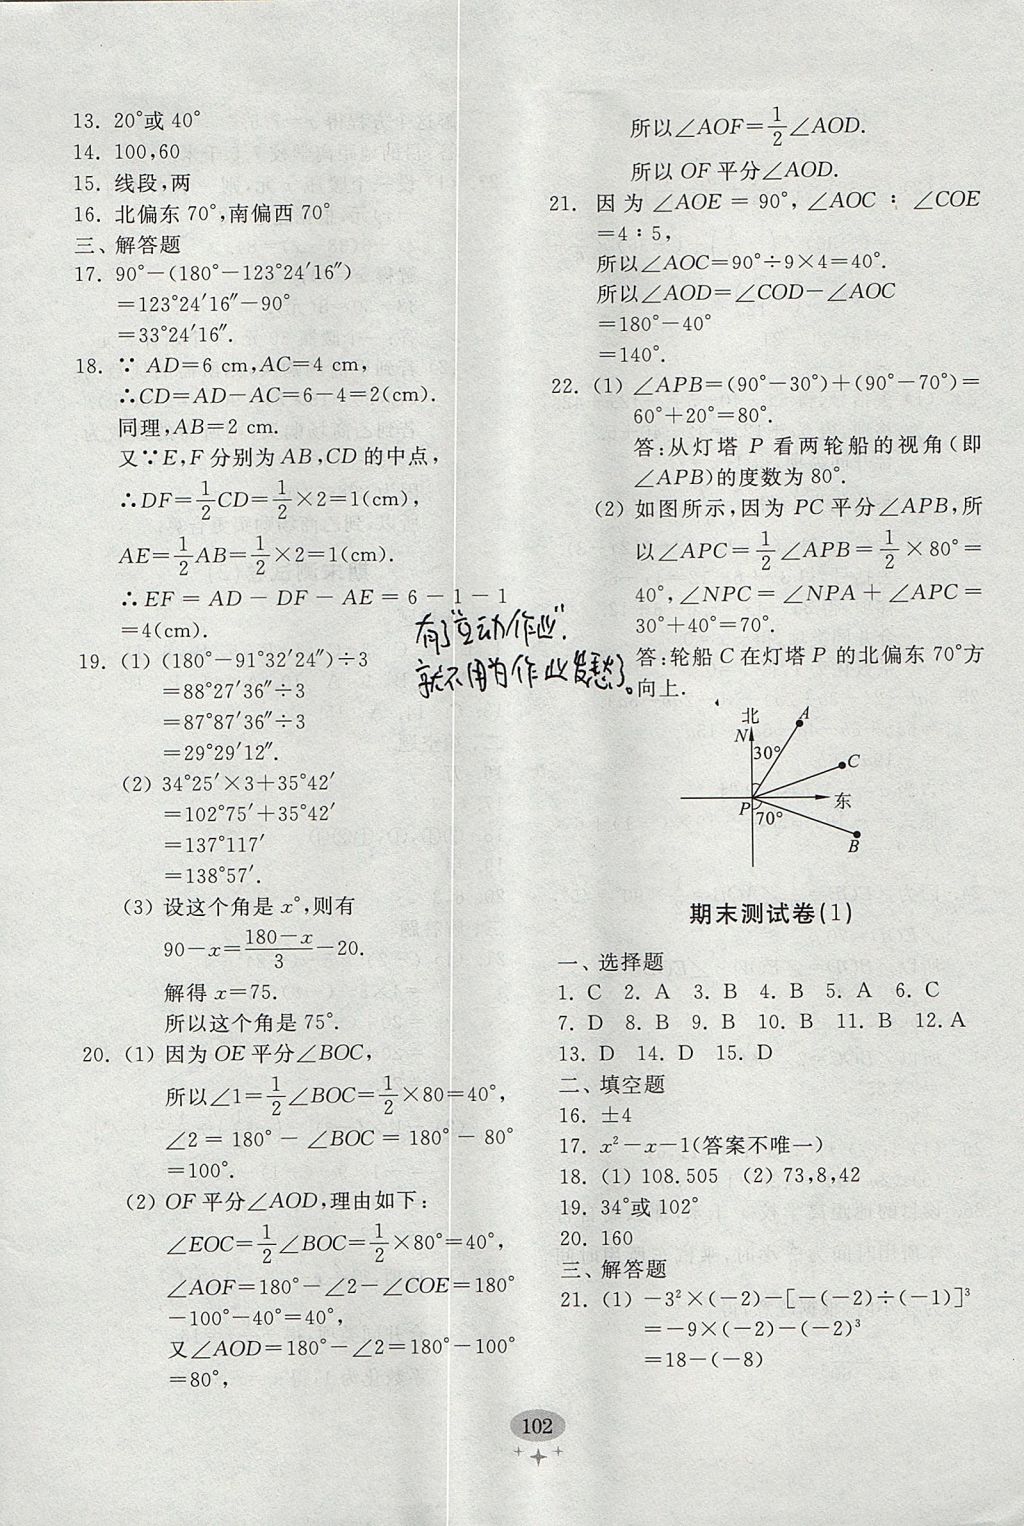 13. 20°或 40°
14. 100,60
15. 线段,两
16. 北偏东 70°,南偏西 70°
三、解答题
17. 90°-(180°-123°24′16″)
=123°24′16″-90°
=33°24′16″.
18. ∵ AD=6 cm,AC=4 cm,
∴CD=AD-AC=6-4=2(cm).
同理,AB=2 cm.
又∵E,F 分别为 AB,CD 的中点,
∴DF=1/2CD=1/2×2=1(cm),
AE=1/2AB=1/2×2=1(cm).
∴EF = AD - DF - AE = 6 - 1 - 1
=4(cm).
19. (1) (180°-91°32′24″)÷3
=88°27′36″÷3
=87°87′36″÷3
=29°29′12″.
(2) 34°25′×3+35°42′
=102°75′+35°42′
=137°117′
=138°57′.
(3) 设这个角是 x°,则有
90-x=(180-x)/3-20.
解得 x=75.
所以这个角是 75°.
20. (1) 因为 OE 平分∠BOC,
所以∠1=1/2∠BOC=1/2×80=40°,
∠2 = 180° - ∠BOC = 180° - 80°
=100°.
(2) OF 平分∠AOD,理由如下:
∠EOC=1/2∠BOC=1/2×80°=40°,
∠AOF=180°-∠2-∠COE=180°
-100°-40°=40°,
又∠AOD=180°-∠2=180°-100°
=80°,
有了"互动作业",
就不用为作业发愁了。
所以∠AOF=1/2∠AOD.
所以 OF 平分∠AOD.
21. 因为 ∠AOE = 90°,∠AOC ∶ ∠COE
=4∶5,
所以∠AOC=90°÷9×4=40°.
所以∠AOD=∠COD-∠AOC
=180°-40°
=140°.
22. (1) ∠APB=(90°-30°)+(90°-70°)=
60°+20°=80°.
答:从灯塔 P 看两轮船的视角(即
∠APB)的度数为 80°.
(2) 如图所示,因为 PC 平分∠APB,所
以∠APC=1/2∠APB=1/2×80°=
40°,∠NPC = ∠NPA + ∠APC =
30°+40°=70°.
答:轮船 C 在灯塔 P 的北偏东 70°方
向上.
北
N
A
30°
C
P
东
70°
B
期末测试卷(1)
一、选择题
1. C 2. A 3. B 4. B 5. A 6. C
7. D 8. B 9. B 10. B 11. B 12. A
13. D 14. D 15. D
二、填空题
16. ±4
17. x²-x-1(答案不唯一)
18. (1) 108.505 (2) 73,8,42
19. 34°或 102°
20. 160
三、解答题
21. (1) -3²×(-2)-[-(-2)÷(-1)]³
=-9×(-2)-(-2)³
=18-(-8)
102